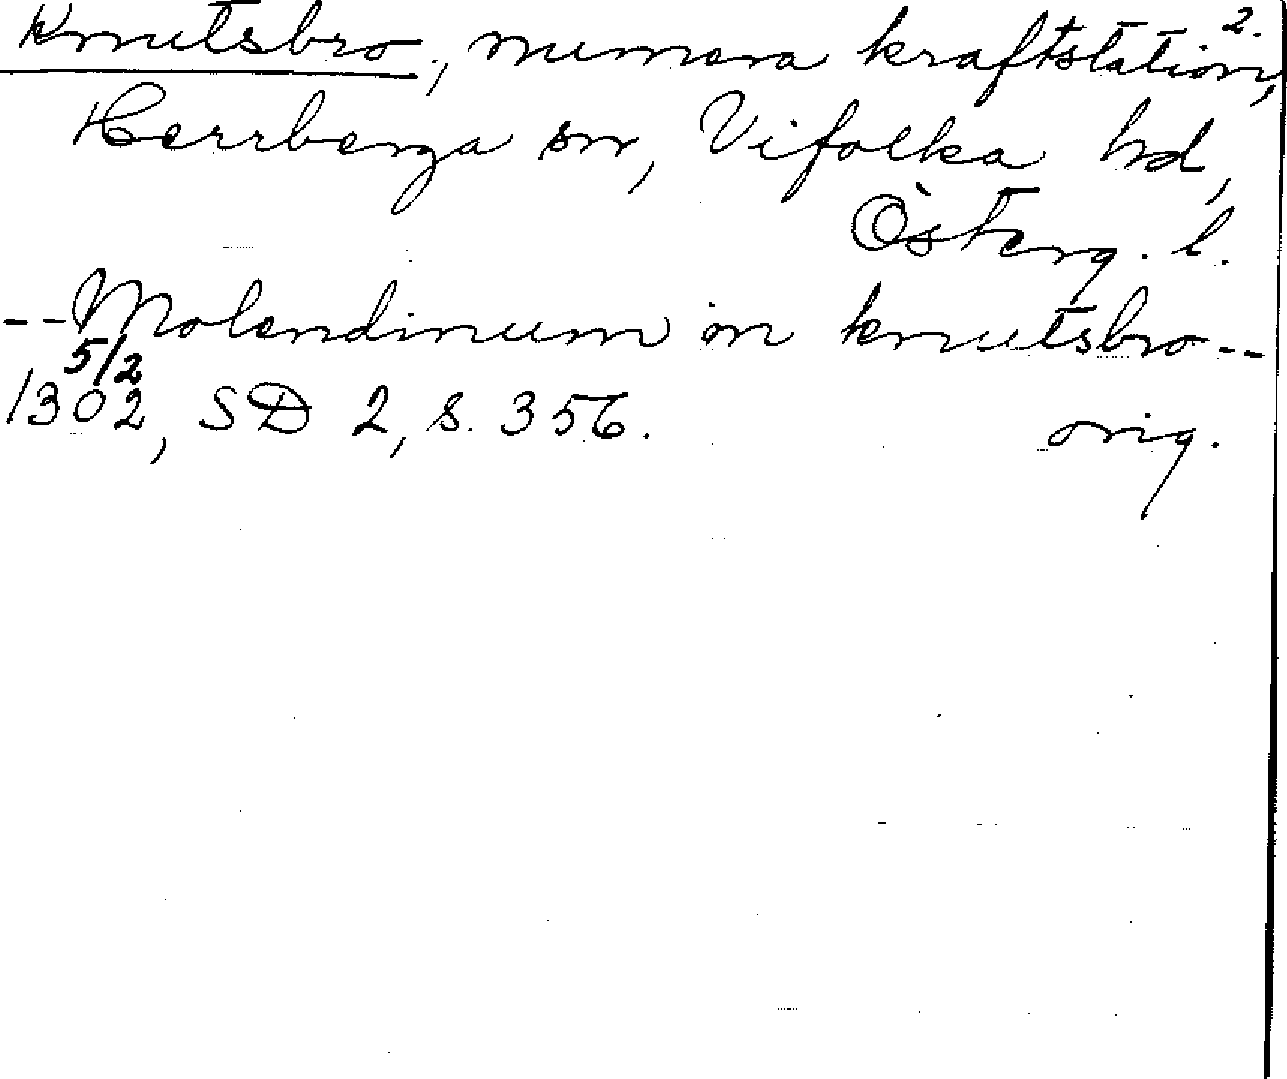 2.
Knutsbro, numera kraftstation,
Herrberga sn, Vifolka hd,
Österg. l.
--Molendinum in knutsbro--
5/2
1302, SD 2, s. 356. orig.